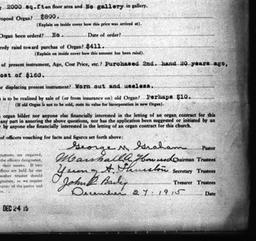 2000 sq.ft on floor area and No gallery in gallery.
posed Organ? $800.
(Explain on inside cover how this price was arrived at).
Organ been ordered? No. Date of order?
ready raised toward purchase of Organ? $411.
(Explain on inside cover how this amount has been raised).
of present instrument, Age, Cost Price, etc.? Purchased 2nd. hand 20 years ago,
cost of $160.
r displacing present instrument? Worn out and useless.
is to be realized by sale of (or from insurance on) old Organ? Perhaps $10.
(If old Organ is not to be sold, state its value for incorporation in new Organ).
organ bilder nor anyone else financially interested in the letting of an organ contract for this
any part in answering the above questions, nor has the application been suggested or initiated by an
by anyone else financially interested in the letting an organ contract for this church.
of officers vouching for facts and figures set forth above:
George M Graham Pastor
Chairman Trustees
Secretary Trustees
John Treasurer Trustees
December 27. 1915 Date
DEC 24 15